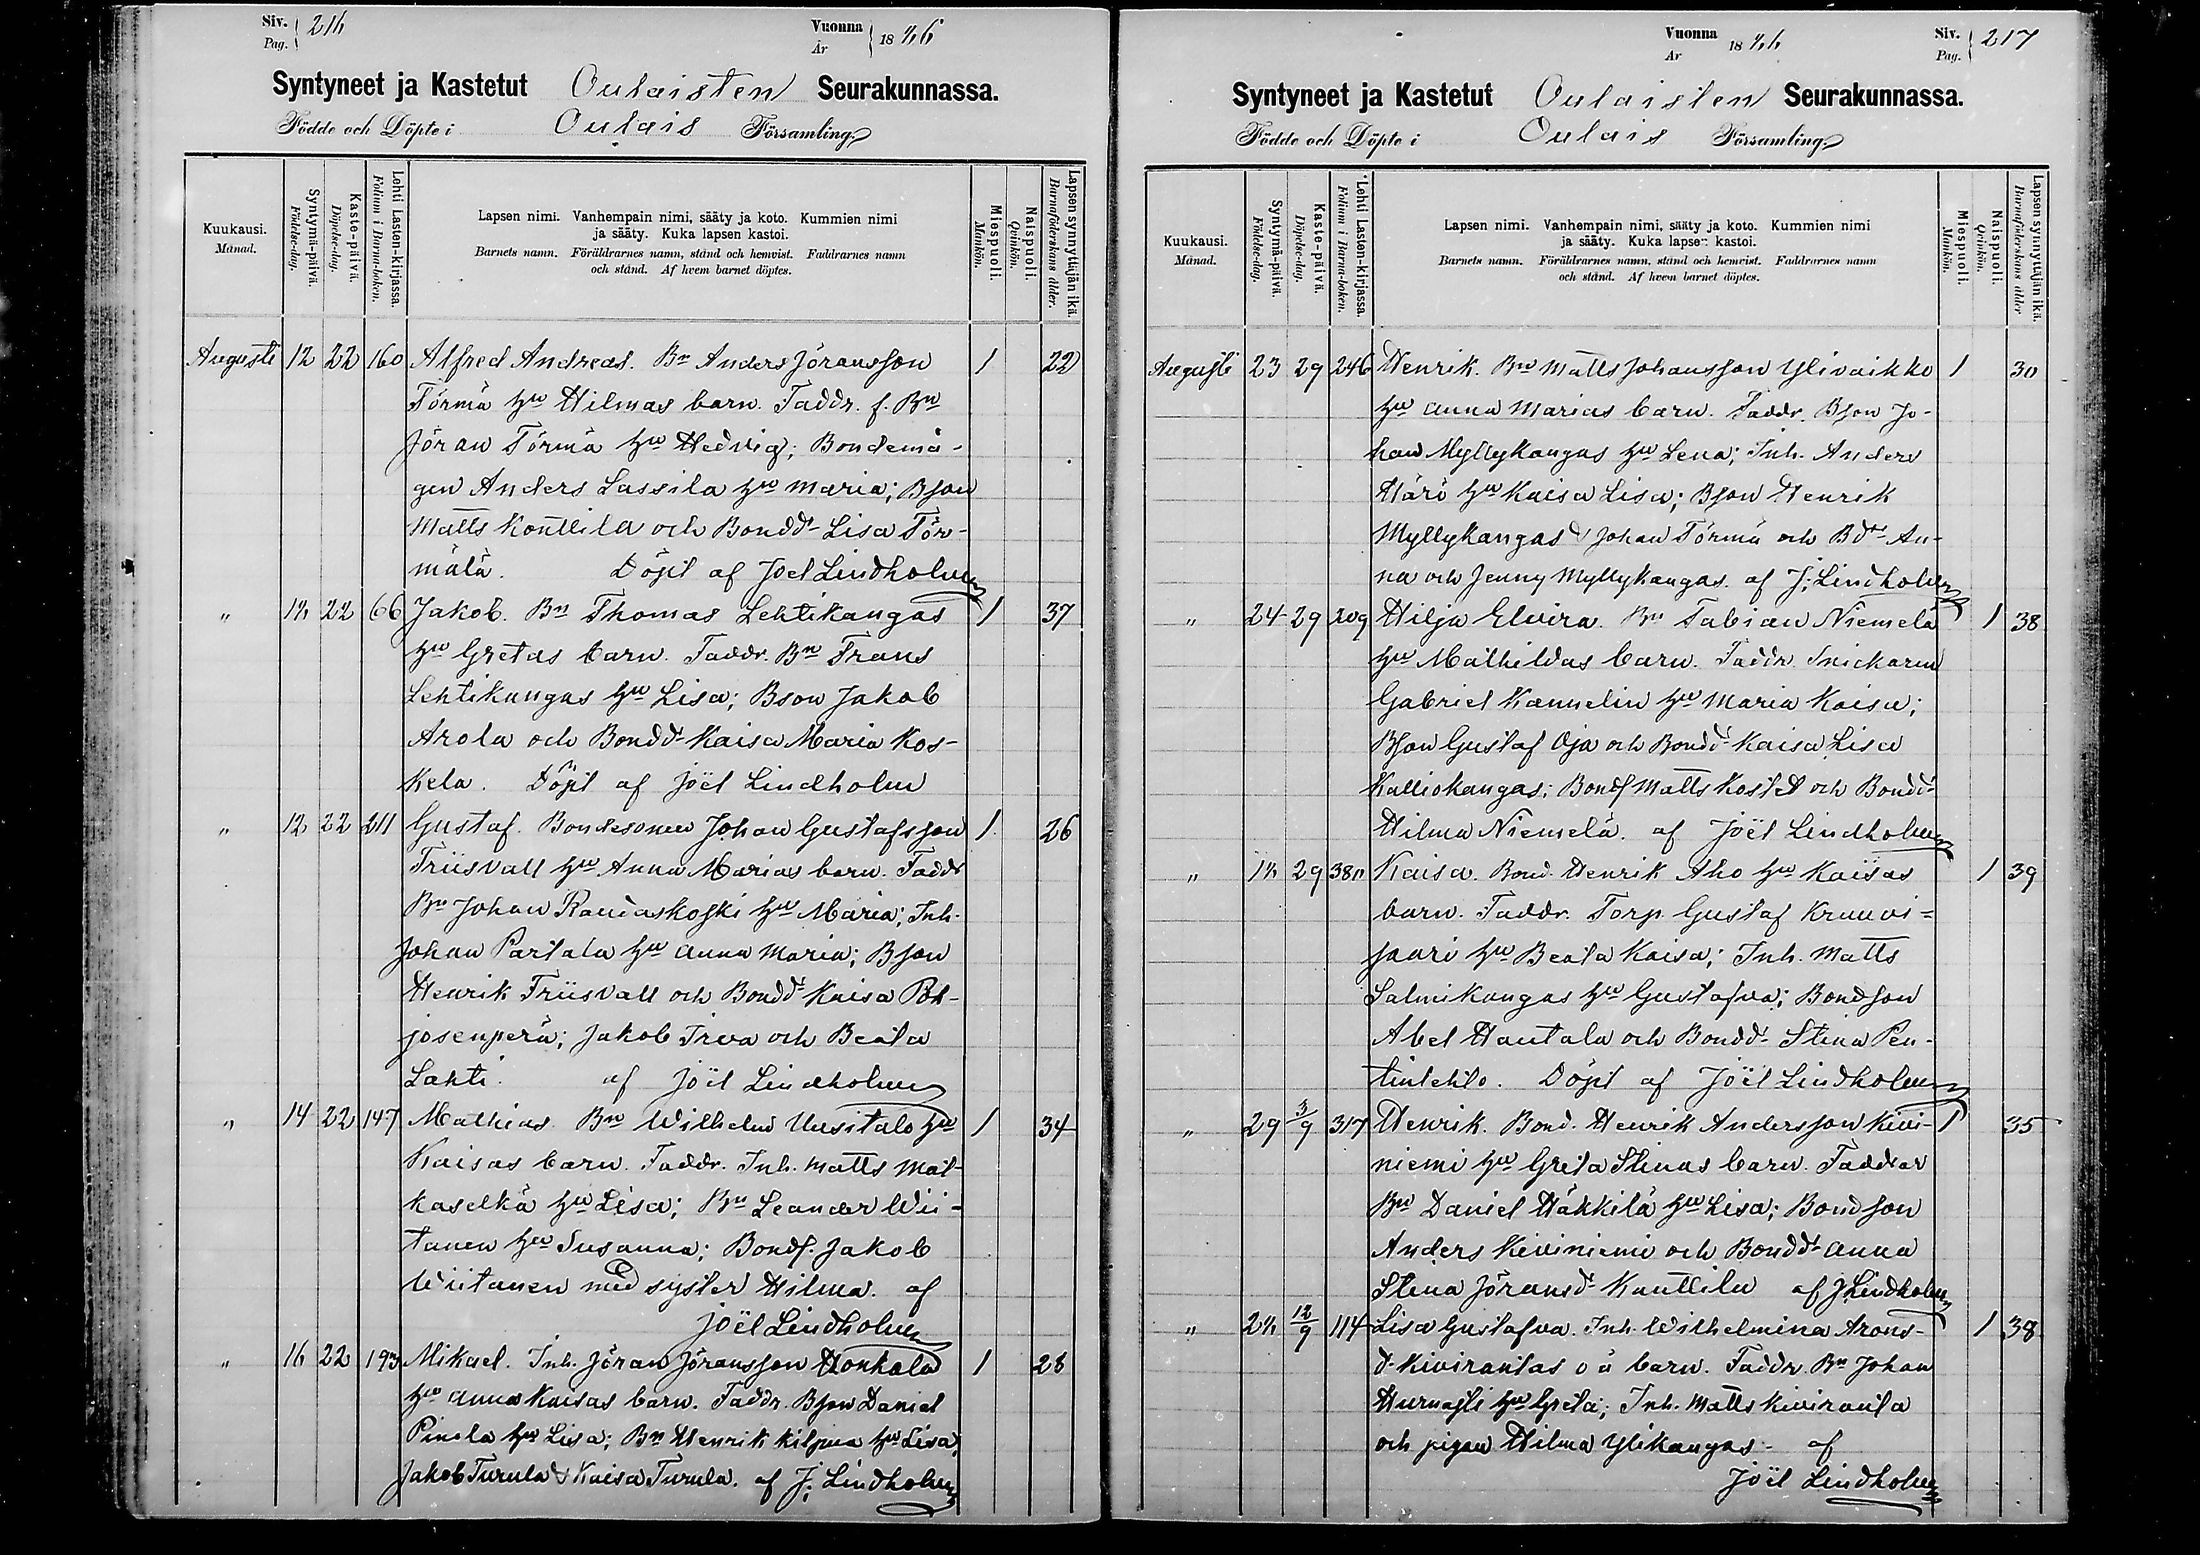 Siv. Pag. 216
Vuonna År 1886
Syntyneet ja Kastetut Oulaisten Seurakunnassa.
Födde och Döpte i Oulais Församling
Kuukausi. Månad.
Syntymä-päivä. Födelse-dag.
Kaste-päivä. Döpelse-dag.
Lehti Lasten-kirjassa. Folium i Barna-boken.
Lapsen nimi. Vanhempain nimi, sääty ja koto. Kummien nimi
ja sääty. Kuka lapsen kastoi.
Barnets namn. Föräldrarnes namn, stånd och hemvist. Faddrarnes namn
och stånd. Af hvem barnet döptes.
Miespuoli. Mankön.
Naispuoli. Qvinkön.
Lapsen synnyttäjän ikä. Barnaföderskans ålder.
Augusti 12 22 160 Alfred Andreas. Bn Anders Jöransson 1 22
Törmä hu Hilmas barn. Faddr. f. Bn
Jöran Törmä hu Hedvig; Bondemå-
gen Anders Lassila hu Maria; Bson
Matts Konttila och Bondd- Lisa Tör-
mälä. Döpt af Joel Lindholm
" 22 66 Jakob. Bn Thomas Lehtikangas 1 37
hu Gretas barn. Faddr. Bn Frans
Lehtikangas hu Lisa; Bson Jakob
Arola och Bondd- Kaisa Maria Kos-
kela. Döpt af Joël Lindholm
" 12 22 211 Gustaf. Bondesonen Johan Gustafsson 1 26
Friisvall hu Anna Marias barn. Faddr
Bn Johan Raudaskoski hu Maria; Inh.
Johan Partala hu Anna Maria; Bson
Henrik Friisvall och Bondd- Kaisa Poh-
josenperä; Jakob Irva och Beata
Lahti. af Joël Lindholm
" 14 22 147 Mathias. Bn Wilhelm Uusitalo hu 1 34
Kaisas barn. Faddr. Inh. Matts Mat-
kaselkä hu Lisa; Bn Leander Wii-
tanen hu Susanna; Bonds. Jakob
Wiitanen med syster Hilma. af
Joël Lindholm
" 16 22 193 Mikael. Inh. Jöran Jöransson Honkala 1 28
hu Anna Kaisas barn. Faddr. Bson Daniel
Pinola hu Lisa; Bn Henrik Kilpua hu Lisa;
Jakob Turula & Kaisa Turula. af J. Lindholm
Vuonna År 1886
Siv. Pag. 217
Syntyneet ja Kastetut Oulaisten Seurakunnassa.
Födde och Döpte i Oulais Församling
Kuukausi. Månad.
Syntymä-päivä. Födelse-dag.
Kaste-päivä. Döpelse-dag.
Lehti Lasten-kirjassa. Folium i Barna-boken.
Lapsen nimi. Vanhempain nimi, sääty ja koto. Kummien nimi
ja sääty. Kuka lapsen kastoi.
Barnets namn. Föräldrarnes namn, stånd och hemvist. Faddrarnes namn
och stånd. Af hvem barnet döptes.
Miespuoli. Mankön.
Naispuoli. Qvinkön.
Lapsen synnyttäjän ikä. Barnaföderskans ålder
Augusti 23 29 246 Henrik. Bn Matts Johansson Ylivaikko 1 30
hu Anna Marias barn. Faddr. Bson Jo-
han Myllykangas hu Lena; Inh. Anders
Härö hu Kaisa Lisa; Bson Henrik
Myllykangas & Johan Törmä och Bd- An-
na och Jenny Myllykangas. af J. Lindholm
" 24 29 209 Hilja Elvira. Bn Fabian Niemelä 1 38
hu Mathildas barn. Faddr. Snickaren
Gabriel Kannelin hu Maria Kaisa;
Bson Gustaf Oja och Bondd- Kaisa Lisa
Kalliokangas; Bonds Matts och Bondd-
Hilma Niemelä. af Joël Lindholm
" 29 Kaisa. Bond. Henrik Aho hu Kaisas 1 39
barn. Faddr. Torp. Gustaf Kruuvi-
saari hu Beata Kaisa; Inh. Matts
Salmikangas hu Gustafva; Bondson
Abel Hautala och Bondd- Stina Pen-
tinlehto. Döpt af Joël Lindholm
" 29 3/9 317 Henrik. Bond. Henrik Andersson Kivi- 1 35
niemi hu Greta Stinas barn. Faddrar
Bn Daniel Häkkilä hu Lisa; Bondson
Anders Kiviniemi och Bondd- Anna
Stina Jöransd- Kanttila af J Lindholm
" 12/9 114 Lisa Gustafva. Inh. Wilhelmina Arons- 1 38
d- Kivirantas o ä barn. Faddr. Bn Johan
Hurnasti hu Greta; Inh. Matts Kiviranta
och pigan Hilma Ylikangas - af
Joël Lindholm